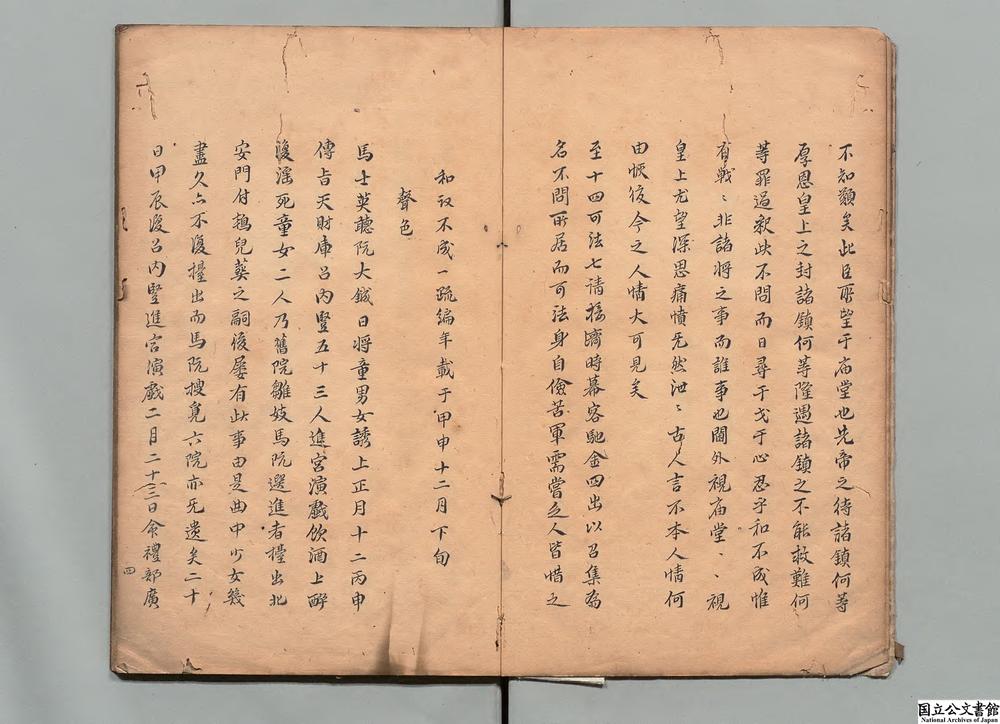 不知類矣此臣所望于庙堂也先帝之待諸鎮何等
厚恩皇上之封諸鎮何等隆遇諸鎮之不能救難何
等罪過釈此不問而日尋干戈于心忍乎和不成惟
有戦〻非諸将之事而誰事也閫外視庙堂〻視
皇上尤望深思痛憤旡然泄〻古人言不本人情何
由恢後今之人情大可見矣
至十四可法七请接濟時幕容馳金四出以召集為
名不問所居而可法身自儉苦軍需當乏人皆惜之
和議不成一疏編年載于甲申十二月下旬
聲色
馬士英聴阮大鋮日将童男女誘上正月十二丙申
傳㫖天財庫召内豎五十三人進宮演戲饮酒上醉
後淫死童女二人乃舊院雛妓馬阮選進者擡出北
安門付鴇兒葬之嗣後屡有此事由是曲中少女幾
盡久亦不復擡出而馬阮搜覓六院亦旡遗矣二十
日甲辰復召内豎進宮演戲二月二十三日命禮部廣
四
国立公文書館
National Archives of Japan